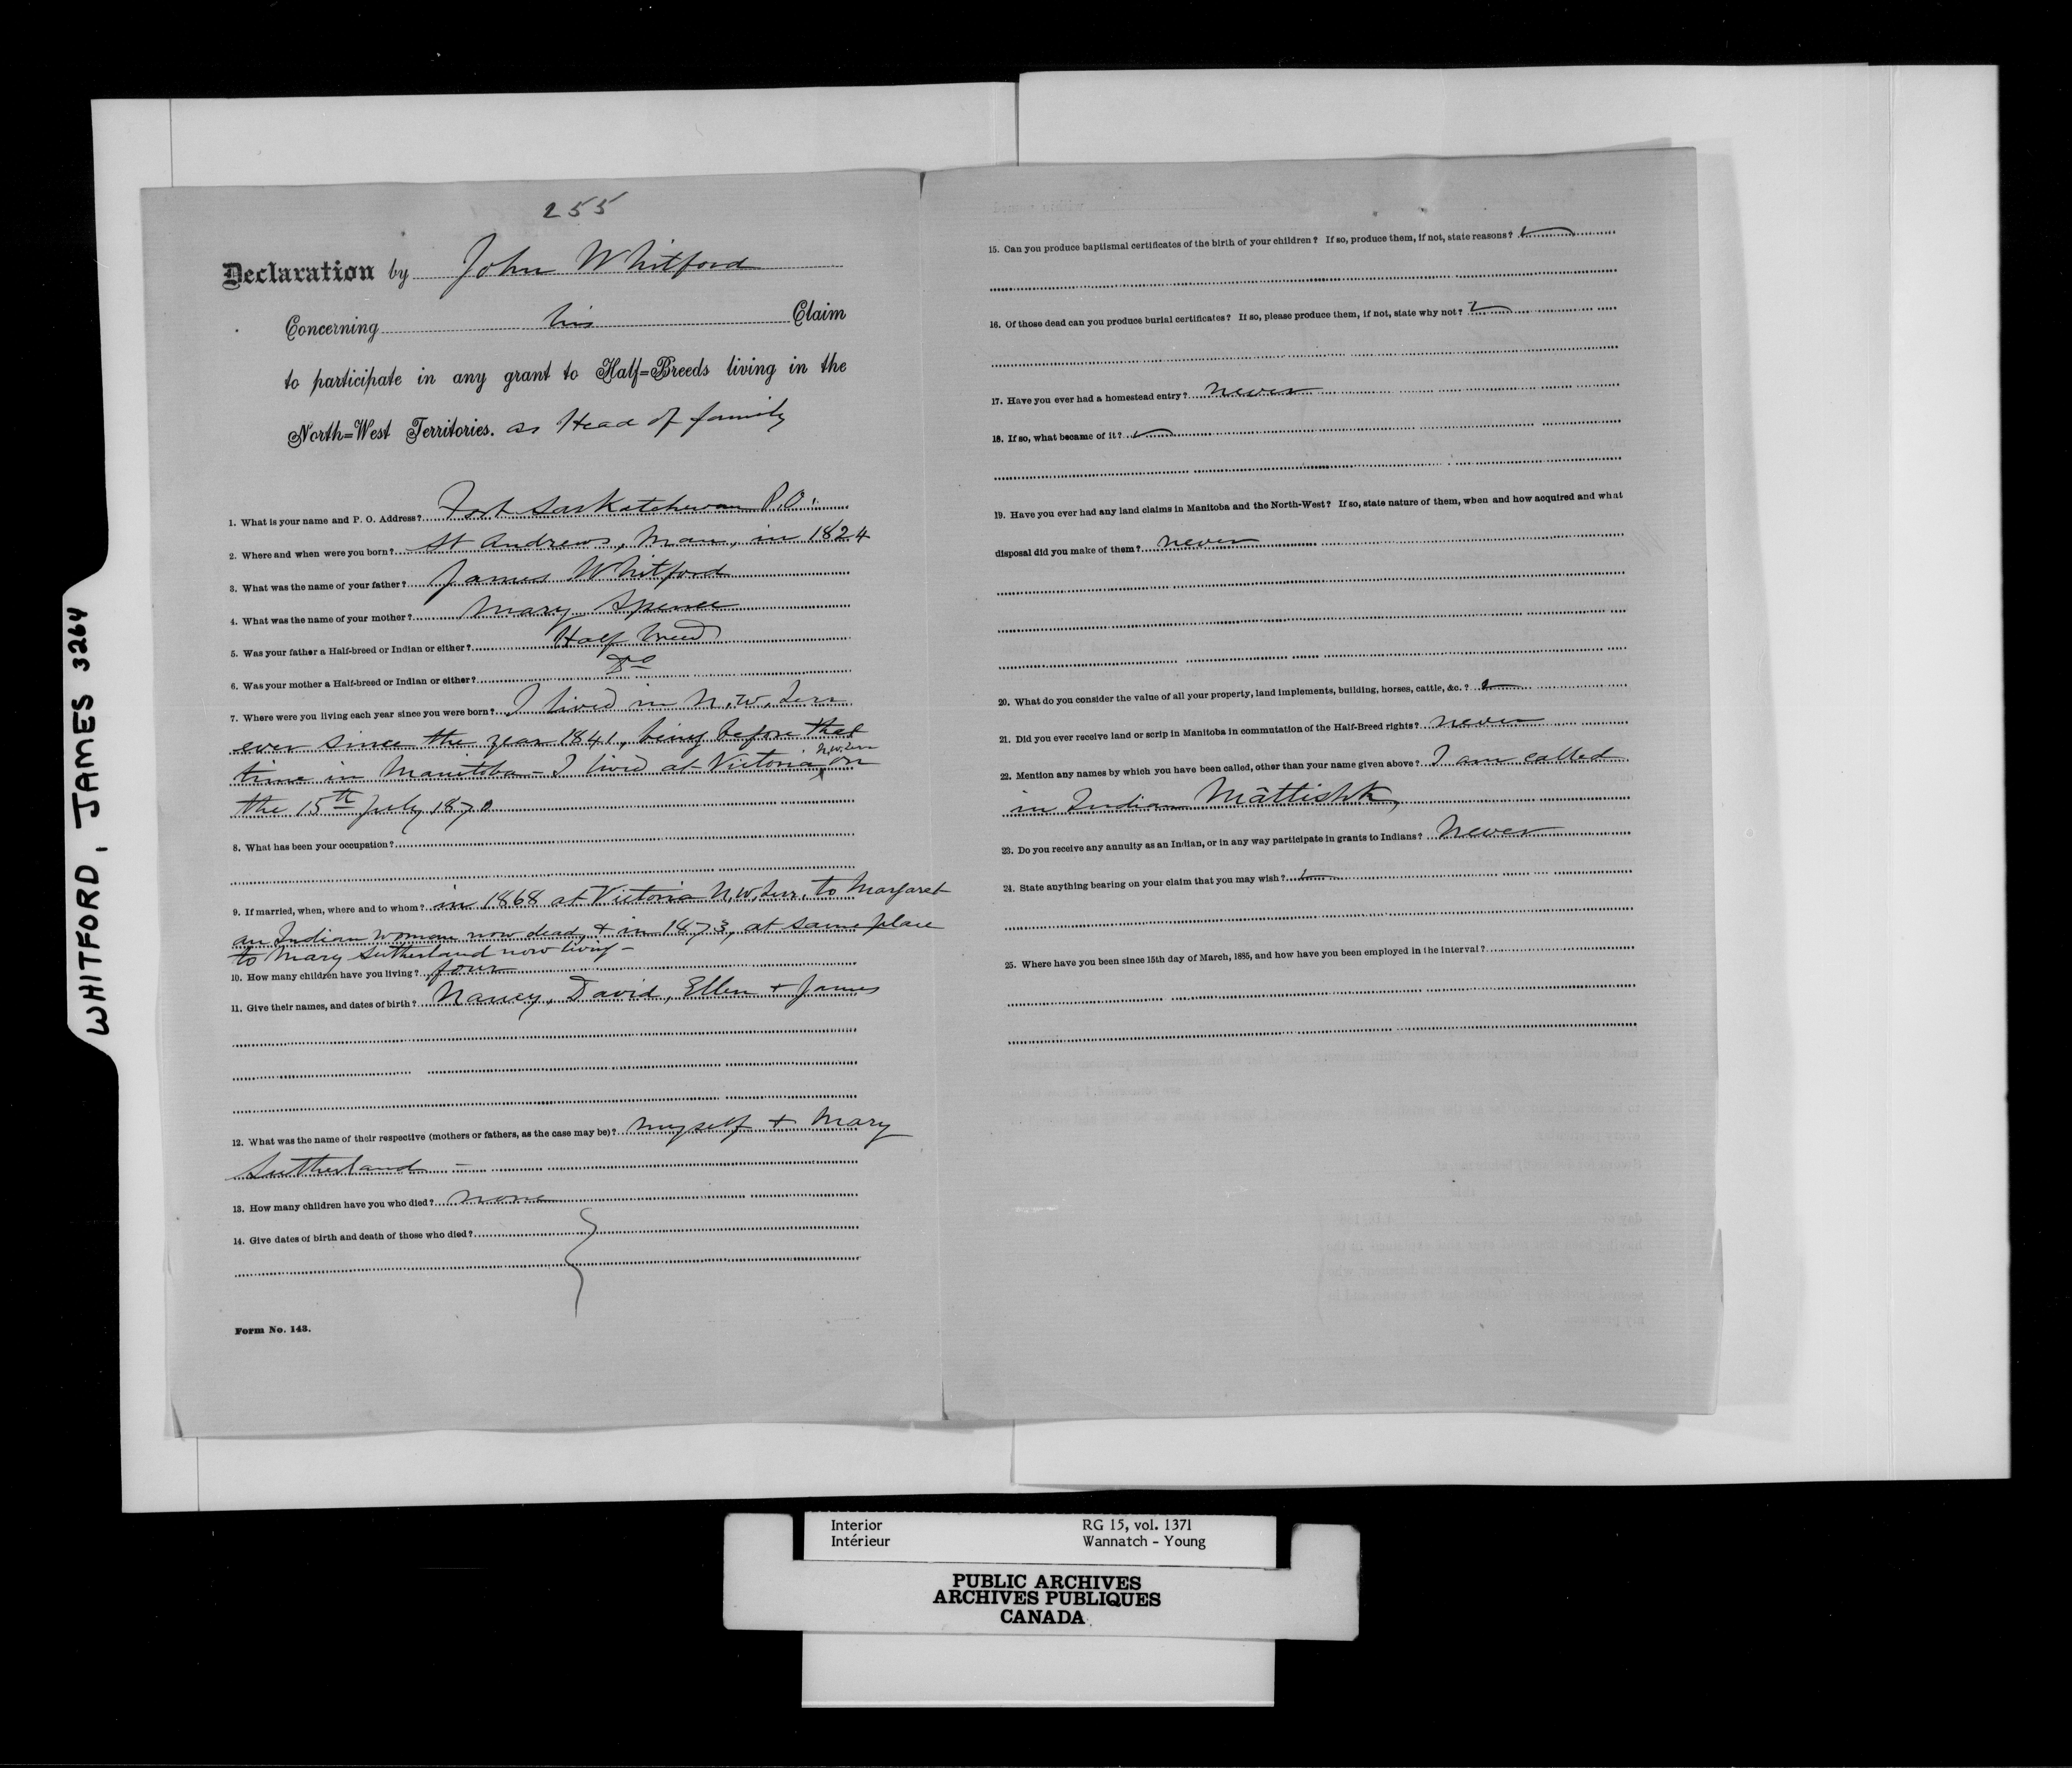 WHITFORD, JAMES 3264
255
Declaration by John Whitford
Concerning his Claim
to participate in any grant to Half=Breeds living in the
North=West Territories. as Head of family
1. What is your name and P. O. Address? Fort Saskatchewan P.O.
2. Where and when were you born? St Andrews, Man, in 1824
3. What was the name of your father? James Whitford
4. What was the name of your mother? Mary Spence
5. Was your father a Half-breed or Indian or either? Half breed
6. Was your mother a Half-breed or Indian or either? Do
7. Where were you living each year since you were born? I lived in N.W. Terr
ever since the year 1841, being before that
time in Manitoba - I lived at Victoria N.W. Terr on
the 15th July 1870
8. What has been your occupation?
9. If married, when, where and to whom? in 1868 at Victoria N.W. Terr. to Margaret
an Indian woman now dead, & in 1873, at same place
to Mary Sutherland now living -
10. How many children have you living? four
11. Give their names, and dates of birth? Nancy, David, Ellen + James
12. What was the name of their respective (mothers or fathers, as the case may be)? myself + Mary
Sutherland -
13. How many children have you who died? none
14. Give dates of birth and death of those who died?
Form No. 143.
15. Can you produce baptismal certificates of the birth of your children? If so, produce them, if not, state reasons?
16. Of those dead can you produce burial certificates? If so, please produce them, if not, state why not?
17. Have you ever had a homestead entry? never
18. If so, what became of it?
19. Have you ever had any land claims in Manitoba and the North-West? If so, state nature of them, when and how acquired and what
disposal did you make of them? never
20. What do you consider the value of all your property, land implements, building, horses, cattle, &c.?
21. Did you ever receive land or scrip in Manitoba in commutation of the Half-Breed rights? never
22. Mention any names by which you have been called, other than your name given above? I am called
in Indian Mâttishk
23. Do you receive any annuity as an Indian, or in any way participate in grants to Indians? Never
24. State anything bearing on your claim that you may wish?
25. Where have you been since 15th day of March, 1885, and how have you been employed in the interval?
Interior RG 15, vol. 1371
Intérieur Wannatch - Young
PUBLIC ARCHIVES
ARCHIVES PUBLIQUES
CANADA